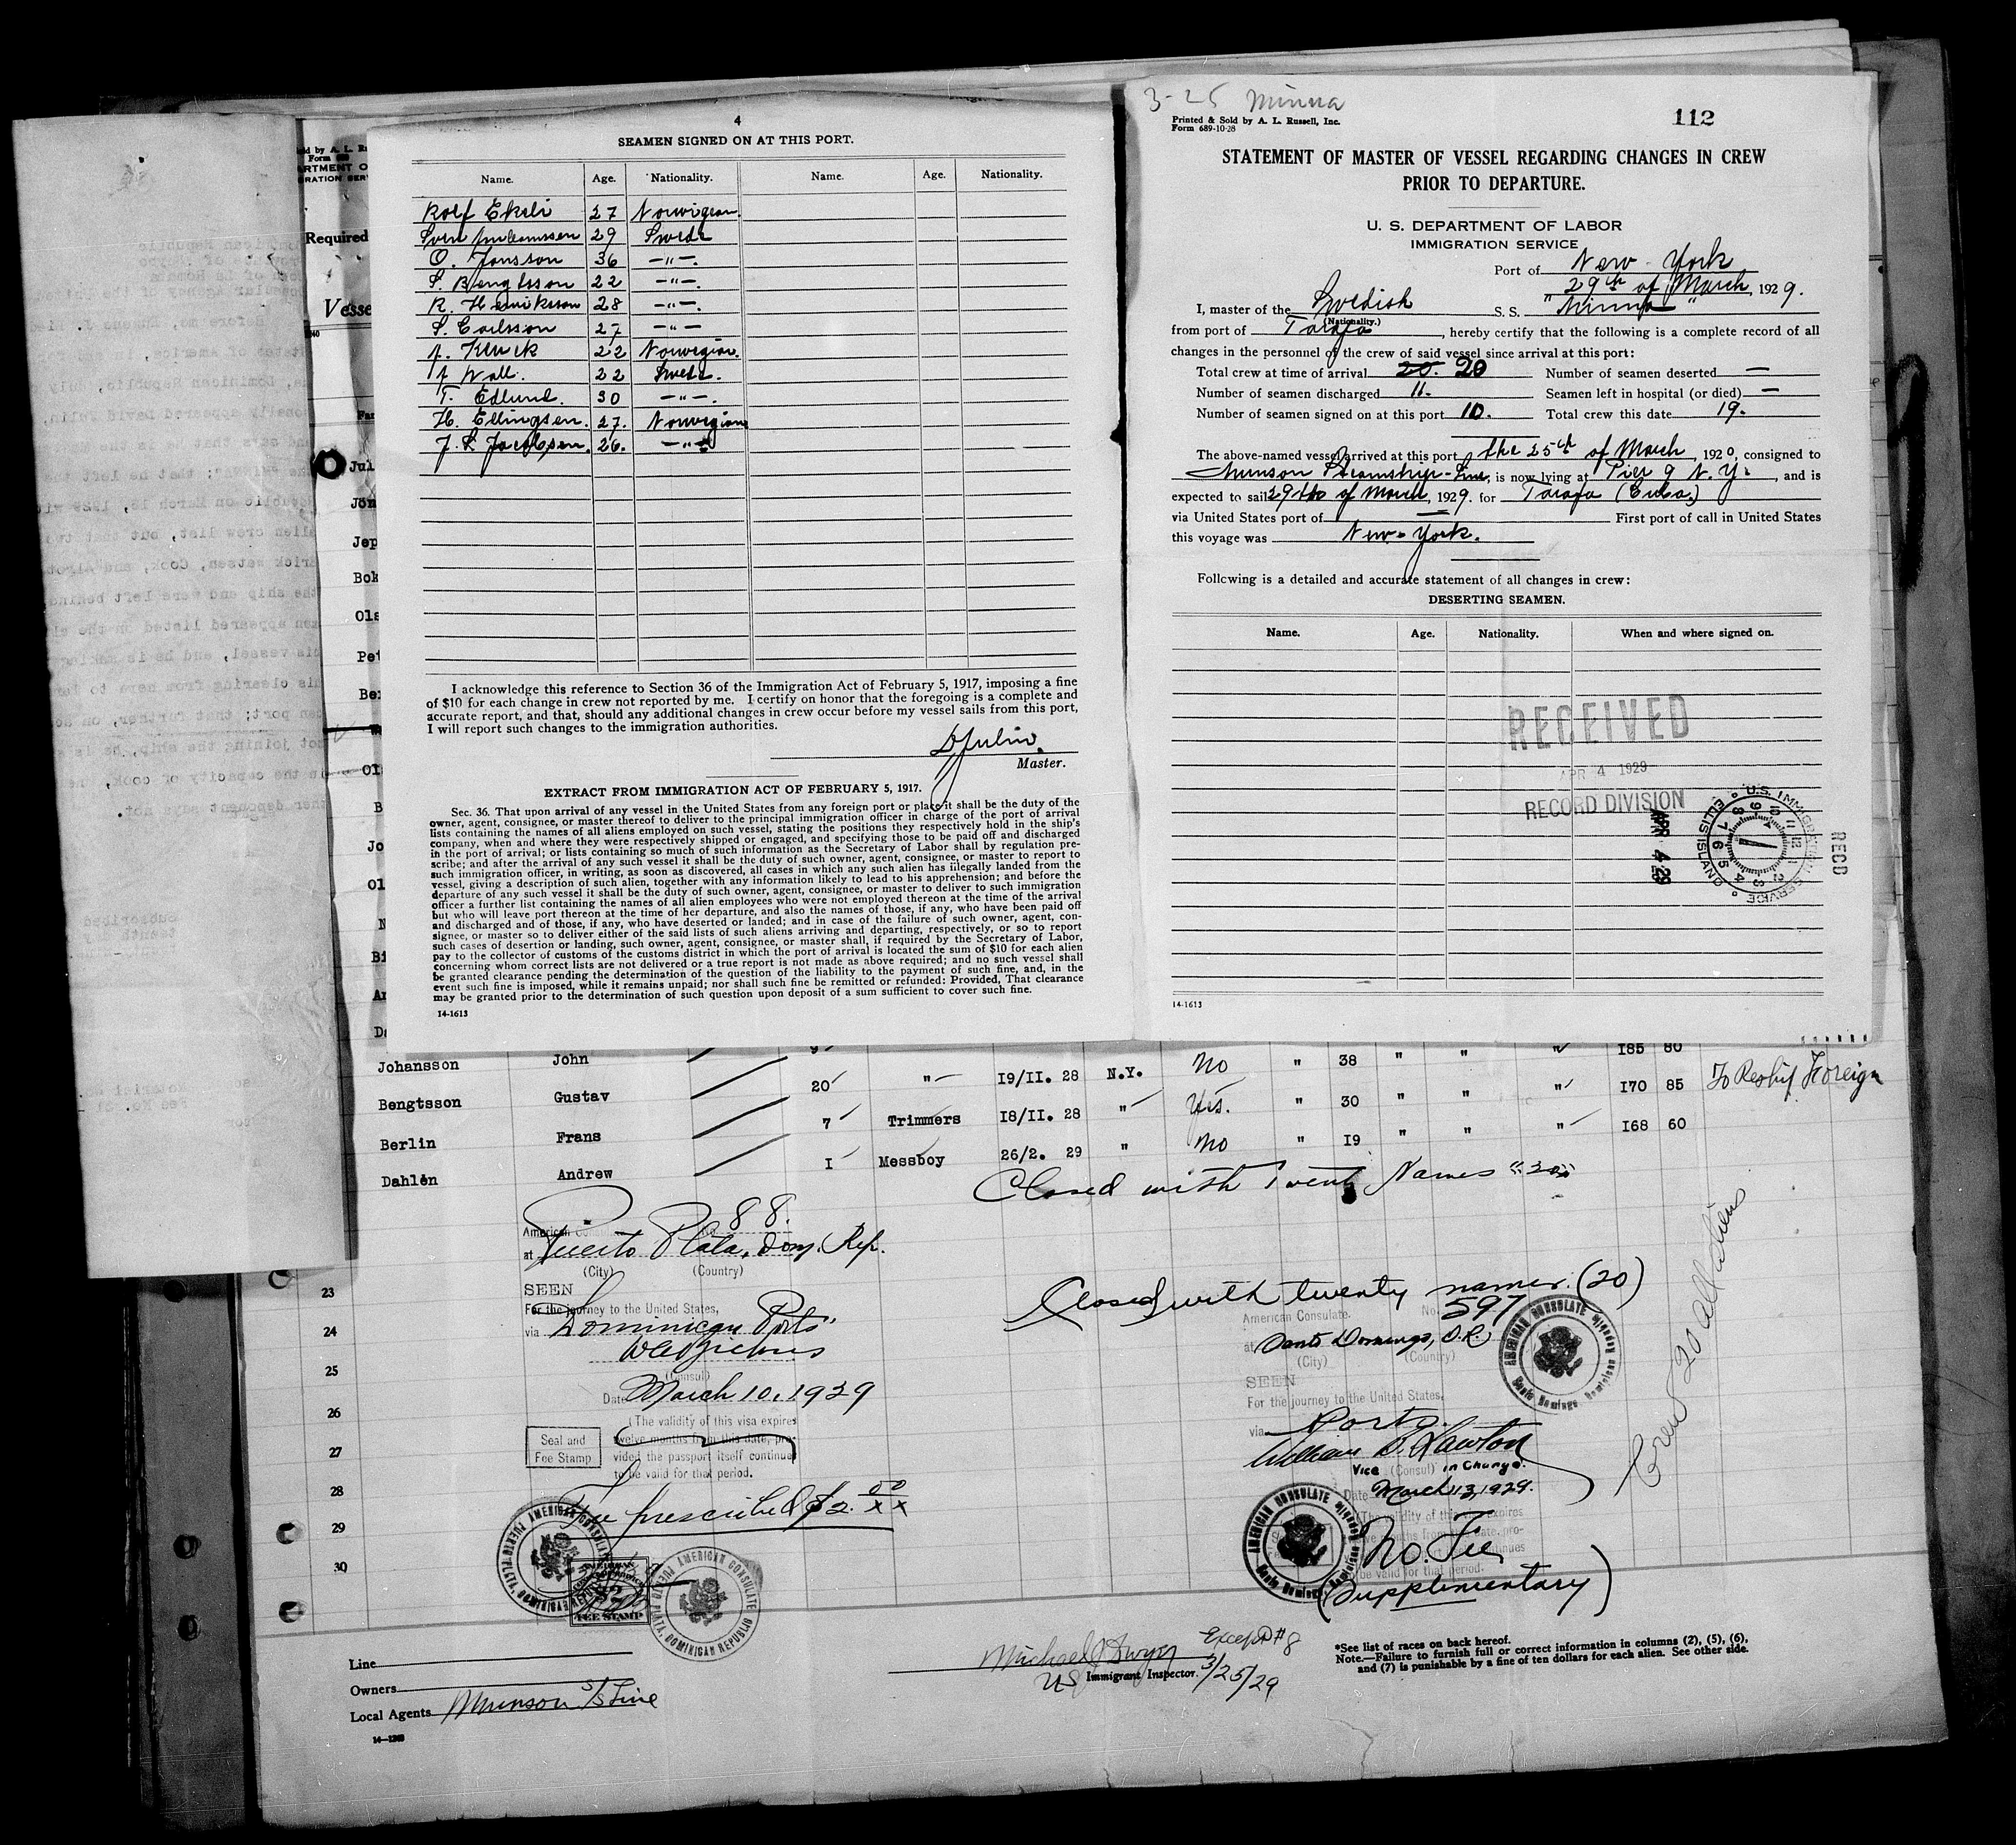 4
SEAMEN SIGNED ON AT THIS PORT.
Name. Age. Nationality. Name. Age. Nationality.
Rolf Ekeli 27 Norwigean
Sven 29 Swede
O. Jonsson 36 -"-.
S. Bengtsson 22 -"-.
R. Henriksson 28 -"-.
S. Carlsson 27 -"-
22 Norwegian.
J Wall. 22 Swede.
T. Edlund. 30 -"-.
H. Ellingsen. 27. Norwegian
J. S. Jacobsen. 26. -"-
I acknowledge this reference to Section 36 of the Immigration Act of February 5, 1917, imposing a fine
of $10 for each change in crew not reported by me. I certify on honor that the foregoing is a complete and
accurate report, and that, should any additional changes in crew occur before my vessel sails from this port,
I will report such changes to the immigration authorities.
DJulin.
Master.
EXTRACT FROM IMMIGRATION ACT OF FEBRUARY 5, 1917.
Sec. 36. That upon arrival of any vessel in the United States from any foreign port or place it shall be the duty of the
owner, agent, consignee, or master thereof to deliver to the principal immigration officer in charge of the port of arrival
lists containing the names of all aliens employed on such vessel, stating the positions they respectively hold in the ship's
company, when and where they were respectively shipped or engaged, and specifying those to be paid off and discharged
in the port of arrival; or lists containing so much of such information as the Secretary of Labor shall by regulation pre-
scribe; and after the arrival of any such vessel it shall be the duty of such owner, agent, consignee, or master to report to
such immigration officer, in writing, as soon as discovered, all cases in which any such alien has illegally landed from the
vessel, giving a description of such alien, together with any information likely to lead to his apprehension; and before the
departure of any such vessel it shall be the duty of such owner, agent, consignee, or master to deliver to such immigration
officer a further list containing the names of all alien employees who were not employed thereon at the time of the arrival
but who will leave port thereon at the time of her departure, and also the names of those, if any, who have been paid off
and discharged and of those, if any, who have deserted or landed; and in case of the failure of such owner, agent, con-
signee, or master so to deliver either of the said lists of such aliens arriving and departing, respectively, or so to report
such cases of desertion or landing, such owner, agent, consignee, or master shall, if required by the Secretary of Labor,
pay to the collector of customs of the customs district in which the port of arrival is located the sum of $10 for each alien
concerning whom correct lists are not delivered or a true report is not made as above required; and no such vessel shall
be granted clearance pending the determination of the question of the liability to the payment of such fine, and, in the
event such fine is imposed, while it remains unpaid; nor shall such fine be remitted or refunded: Provided, That clearance
may be granted prior to the determination of such question upon deposit of a sum sufficient to cover such fine.
14-1613
3-25 Minna
Printed & Sold by A. L. Russell, Inc.
Form 689-10-28
112
STATEMENT OF MASTER OF VESSEL REGARDING CHANGES IN CREW
PRIOR TO DEPARTURE.
U. S. DEPARTMENT OF LABOR
IMMIGRATION SERVICE
Port of New York
29th of March, 1929.
I, master of the Swedish S. S. "Minna"
(Nationality.)
from port of Tarafa, hereby certify that the following is a complete record of all
changes in the personnel of the crew of said vessel since arrival at this port:
Total crew at time of arrival 20. 20 Number of seamen deserted —
Number of seamen discharged 11. Seamen left in hospital (or died) —
Number of seamen signed on at this port 10. Total crew this date 19.
The above-named vessel arrived at this port the 25th of March, 1920, consigned to
Munson Steamship-Line, is now lying at Pier 9 N. Y., and is
expected to sail 29th of March, 1929. for Tarafa (Cuba.)
via United States port of — First port of call in United States
this voyage was New-York.
Following is a detailed and accurate statement of all changes in crew:
DESERTING SEAMEN.
Name. Age. Nationality. When and where signed on.
RECEIVED
APR 4 1929
RECORD DIVISION
APR 4 29
U.S. IMMIGRATION SERVICE ELLIS ISLAND
RECD
14-1613
Required
Vesse
Jul
Jön
Jep
Bok
Ols
Pet
Be
Ol
B
Jo
Ol
N
Bi
An
Da
Johansson John 9 185 80
Bengtsson Gustav 20 -"- 19/II. 28 N.Y. No " 38 " " " 170 85 To Reship Foreign
Berlin Frans 7 Trimmers 18/II. 28 " Yes. " 30 " " " 168 60
Dahlén Andrew I Messboy 26/2. 29 " No " 19 " " "
Closed with Twent Names "20"
American No. 88.
at Puerto Plata, Dom. Rep.
(City) (Country)
SEEN
For the journey to the United States,
via Dominican Ports
(Consul)
Date March 10, 1929
(The validity of this visa expires
twelve months from this date, pro-
vided the passport itself continues
to be valid for that period.
Seal and
Fee Stamp
Fee prescribed $2.00
AMERICAN CONSULATE PUERTO PLATA, DOMINICAN REPUBLIC
FEE STAMP
AMERICAN CONSULATE PUERTO PLATA, DOMINICAN REPUBLIC
Closed with twenty names. (20)
American Consulate. No. 597
at Santo Domingo, D.R.
(City) (Country)
SEEN
For the journey to the United States,
via Ports.
William B. Lawton
Vice (Consul) in Charge.
Date March 13, 1929.
No. Fee
(Supplimentary)
AMERICAN CONSULATE Santo Domingo Dominican Republic
AMERICAN CONSULATE Santo Domingo Dominican Republic
23
24
25
26
27
28
29
30
Line
Owners
Local Agents Munson S/S Line
14-1368
Michael J Dwyer Except #8
US Immigrant Inspector. 3/25/29
*See list of races on back hereof.
Note.—Failure to furnish full or correct information in columns (2), (5), (6),
and (7) is punishable by a fine of ten dollars for each alien. See other side.